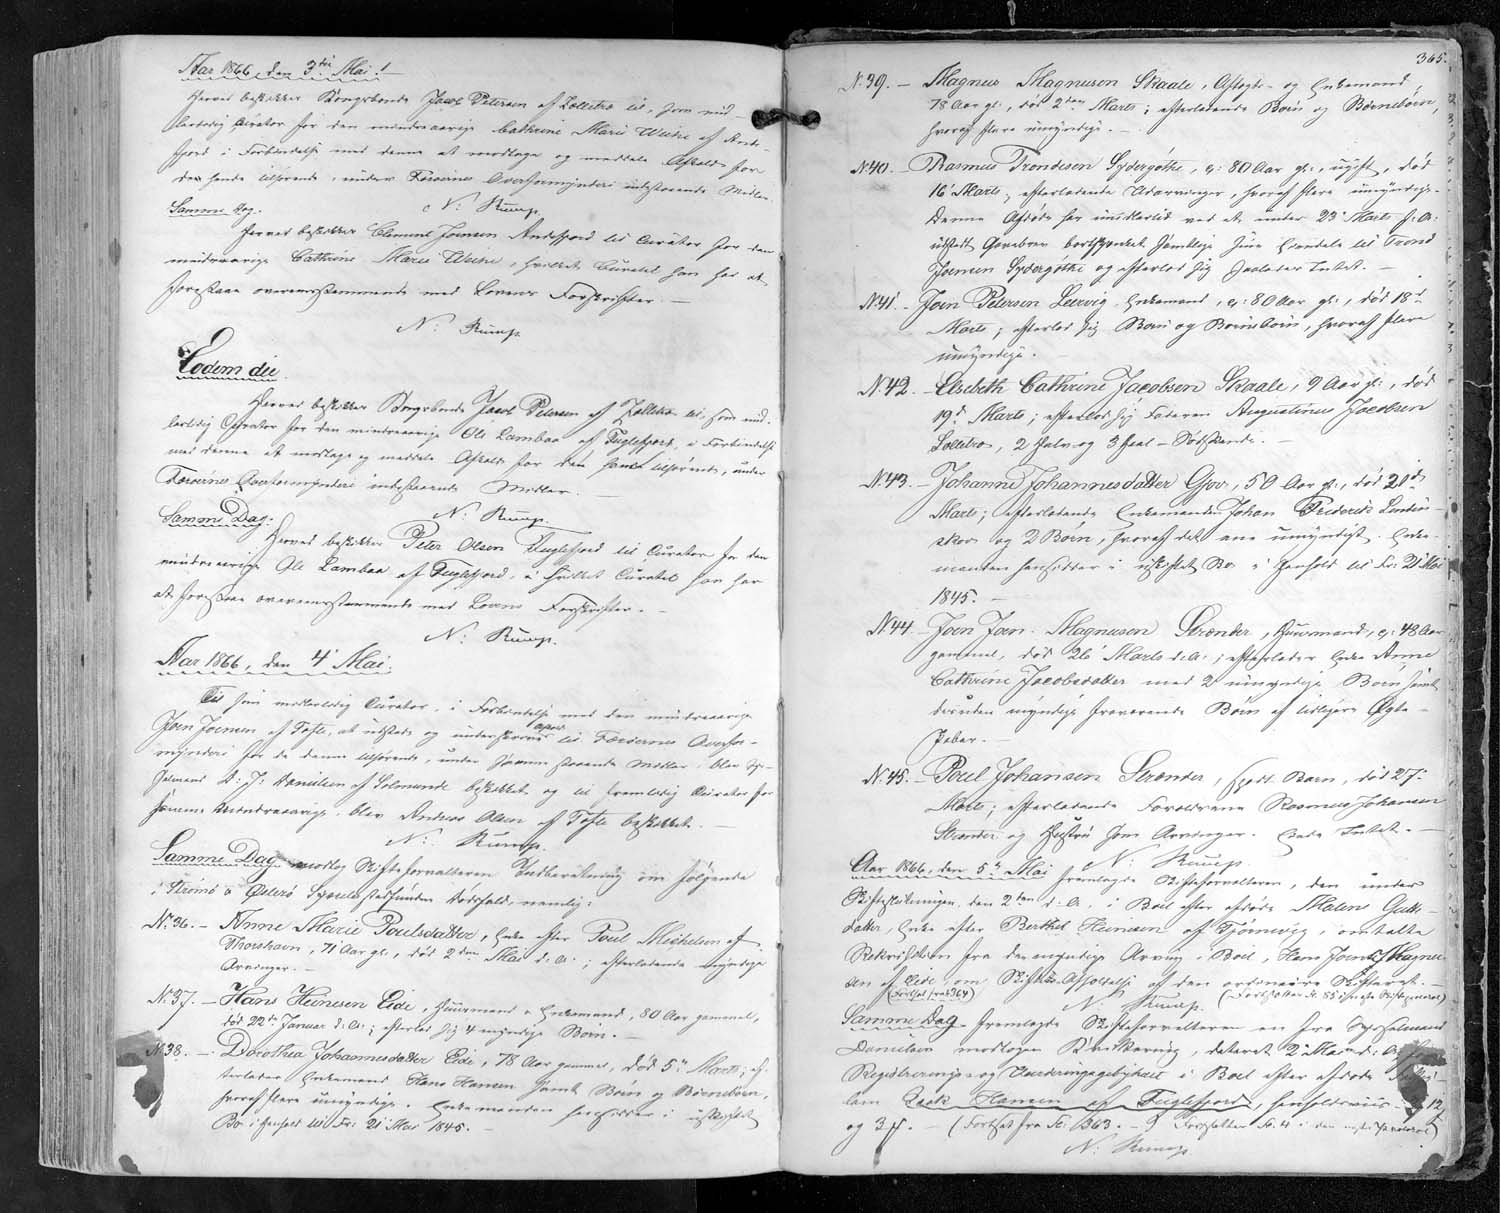 Aar 1866, den 3die Mai!
Herved beskikkes Kongsbonde Jacob Petersen af Lollebro til, som mid-
lertidig Curator for den mindreaarige Cathrine Marie Weihe af Ande-
fjord i Forbindelse med denne at modtage og meddele Afkald for
den hende tilhørende, under Færøernes Overformynderi indestaaende Midler.
N: Rump.
Samme Dag.
Herved beskikkes Clement Joensen Andefjord til Curator for den
mindreaarige Cathrine Marie Weihe, hvilket Curatel han har at
forestaae overensstemmende med Lovens Forskrifter. —
N: Rump.
Eodem die.
Herved beskikkes Kongsbonde Jacob Petersen af til, som mid-
lertidig Curator for den mindreaarige Ole Lambaa af Fuglefjord, i Forbindelse
med denne at modtage og meddele Afkald for den ham tilhørende, under
Færøernes Overformynderi indestaaende Midler. —
N: Rump.
Samme Dag.
Herved beskikkes Peter Olsen Fuglefjord til Curator for den
mindreaarige Ole Lambaa af Fuglefjord, hvilket Curatel han har
at forestaae overensstemmende med Lovens Forskrifter. —
N: Rump.
Aar 1866, den 4' Mai.
Til som midlertidig Curator, i Forbindelse med den mindreaarige
Joen Joensen af Tofte, at udstede og underskrive til Færøernes Overfor-
mynderi for de denne tilhørende, under samme staaende Midler, blev Sys-
selmand D: J: Danielsen af Solmunde beskikket og til fremtidig Curator for
samme Mindreaarige, blev Andreas Olsen af Tofte beskikket. —
N: Rump.
Samme Dag modtog Skifteforvalteren Indberetning om følgende
i Strømø & Østerø Syssel stedfundne Dødsfald, nemlig:
No. 36. — Anne Marie Poulsdatter, Enke efter Poul Michelsen af
Thorshavn, 71 Aar gl., død 2den Mai d. A.; efterladende myndige
Arvinger. —
No. 37. — Hans Heinesen Eide, Huusmand & Enkemand, 80 Aar gammel,
død 22de Januar d. A.; efterlod sig 4 myndige Børn. —
No. 38. — Dorothea Johannesdatter Eide, 78 Aar gammel, død 5te Marts; ef-
terlader Enkemand Hans Hansen samt Børn og Børnebørn,
hvoraf flere umyndige. Enkemanden hensidder i uskiftet
Bo i Henhold til Fr: 21' Mai 1845. —
365.
No. 39. — Magnus Magnusen Skaale, Aftægts- og Enkemand,
78 Aar gl., død 2den Marts; efterladende Børn og Børnebørn,
hvoraf flere umyndige. —
No. 40. — Rasmus Trondesen Sydergøthe, c: 80 Aar gl., ugift, død
16' Marts, efterladende Udarvinger, hvoraf flere umyndige.
Denne Afdøde har imidlertid ved et under 23' Marts f. A.
udstedt Gavebrev bortskjenket samtlige sine Eiendele til Trond
Joensen Sydergøthe og efterlod sig saaledes Intet. —
No. 41. — Joen Petersen Leervig, Enkemand, c: 80 Aar gl., død 18de
Marts; efterlod sig Børn og Børnebørn, hvoraf flere
umyndige.
No. 42. — Elsebeth Cathrine Jacobsen Skaale, 9 Aar gl., død
19de Marts; efterlod sig Faderen Augustinus Jacobsen
2 Halv og 3 Heel-Sødskende. —
No. 43. — Johanne Johannesdatter Gjov, 50 Aar gl., død 21de
Marts; efterladende Enkemanden Johan Frederik Lindin-
skov og 2 Børn, hvoraf det ene umyndigt. Enke-
manden hensidder i uskiftet Bo i Henhold til Fr: 21' Mai
1845. —
No. 44. — Joen Joen-Magnusen Strænder, Huusmand, c: 48 Aar
gammel, død 26' Marts d. A.; efterlader Enke Anne
Cathrine Jacobsdatter med 2 umyndige Børn samt
desuden myndige fraværende Børn af tidligere Ægte-
skaber. —
No. 45. — Poul Johansen Strænder, spædt Barn, død 27.
Marts; efterladende Forældrene Rasmus Johansen
Strænder og Hustru som Arvinger. Eiede Intet. —
N: Rump.
Aar 1866, den 5te Mai fremlagde Skifteforvalteren, den under
Skifteslutningen den 2den d. A. i Boet efter afdøde Malene Gutte-
datter, Enke efter Berthel Heinesen af Tjørnevig, omtalte
Rekvisition fra den myndige Arving i Boet, Hans Joen Magnu-
sen af Eide, om Skiftets Afholdelse af den ordinaire Skifteret. —
(Fortsat fra 364)
N: Rump.
(Fortsættes Fo. 85 i næste Skifteprotocol)
Samme Dag fremlagde Skifteforvalteren en fra Sysselmand
Danielsen modtagen Skrivelse, dateret 2' Mai d. A.
Registrerings- og Vurderingsforretning i Boet efter afdøde
Isak Hansen af Fuglefjord, henholdsviis 12
og 3 ß. — (Fortsat fra Fo. 363. — Fortsættes Fo. 4 i den næste Protocol)
N: Rump.